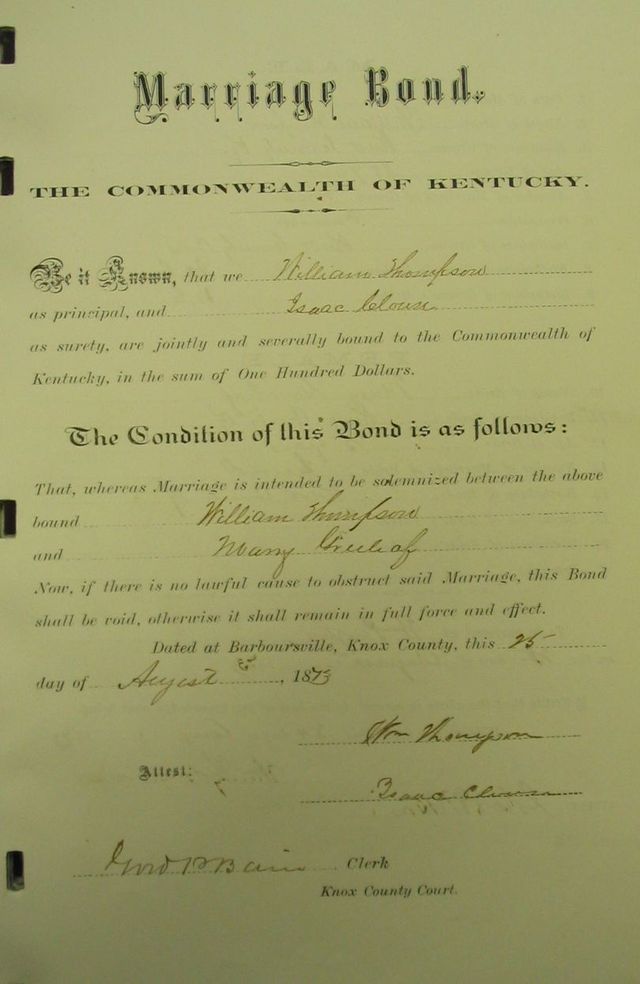 Marriage Bond.
THE COMMONWEALTH OF KENTUCKY.
Be it Known, that we William Thompson
as principal, and Isaac
as surety, are jointly and severally bound to the Commonwealth of
Kentucky, in the sum of One Hundred Dollars.
The Condition of this Bond is as follows:
That, whereas Marriage is intended to be solemnized between the above
bound William Thompson
and Mary
Now, if there is no lawful cause to obstruct said Marriage, this Bond
shall be void, otherwise it shall remain in full force and effect.
Dated at Barboursville, Knox County, this 25
day of August, 1873
Wm Thompson
Isaac
Attest:
Clerk
Knox County Court.